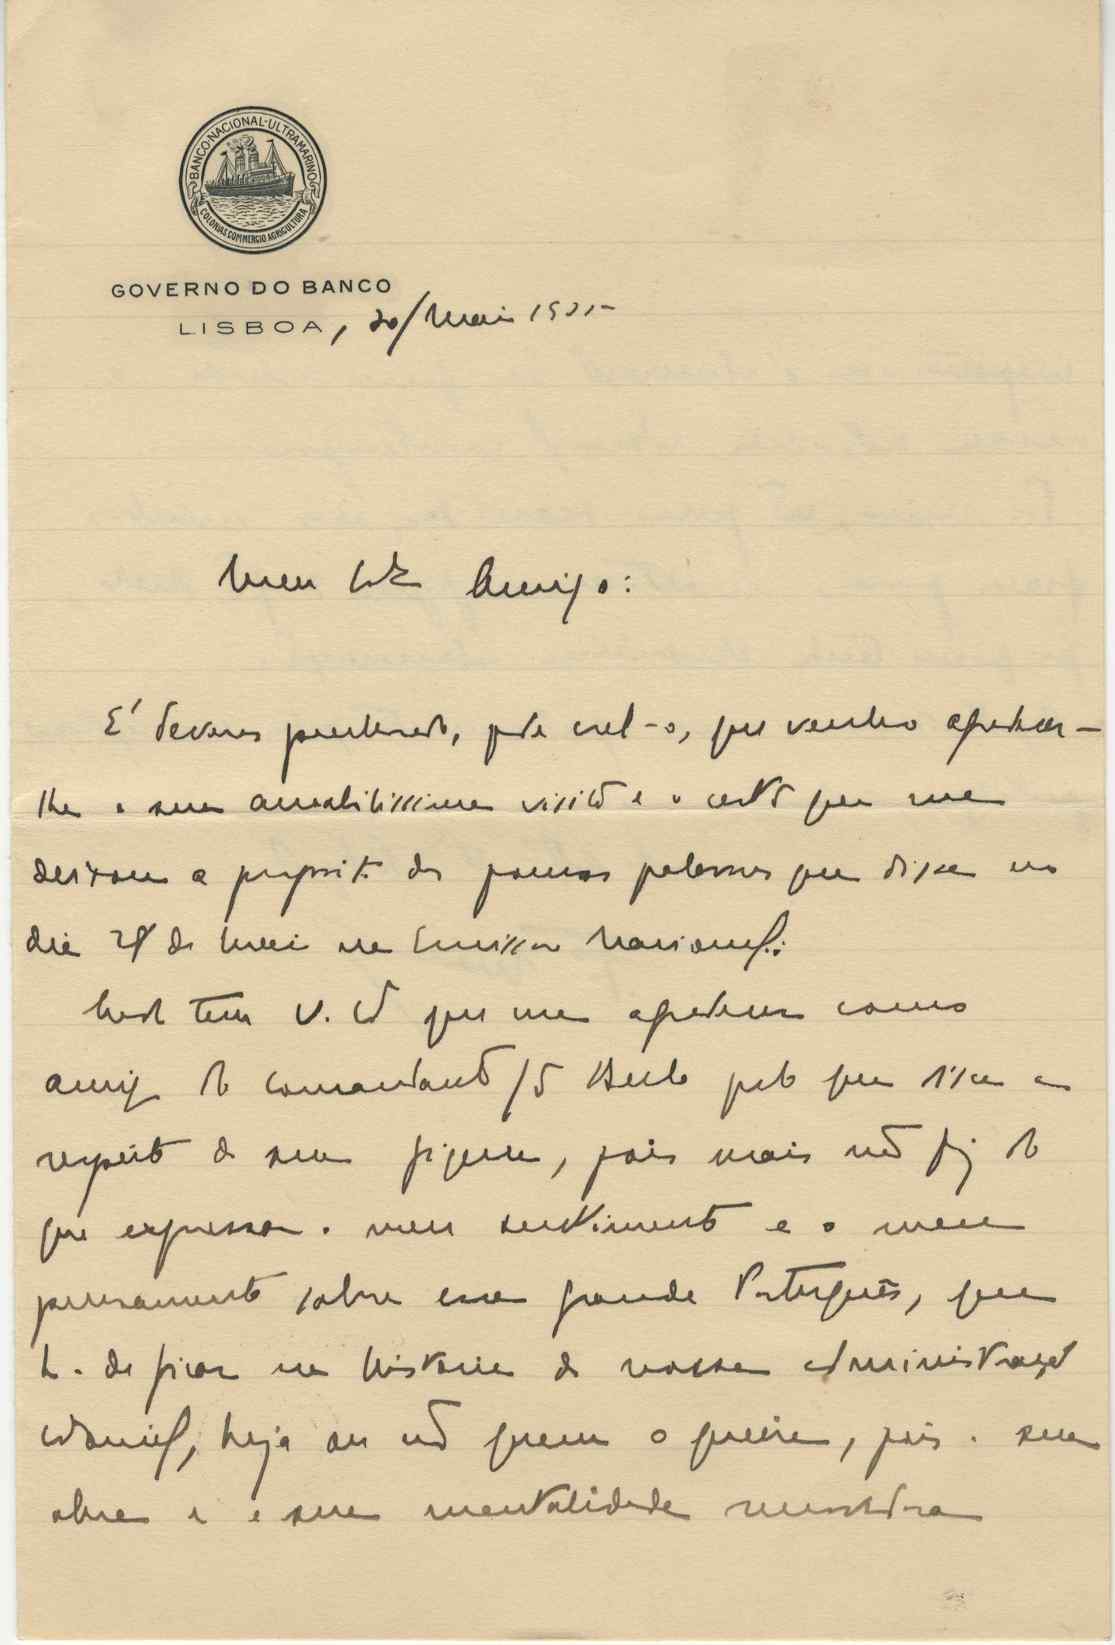 BANCO NACIONAL ULTRAMARINO
COLONIAS COMMERCIO AGRICULTURA
GOVERNO DO BANCO
LISBOA, 30/Maio 1935
Meu Amigo:
E' deveras penhorado, pode crel-o, que venho agradecer-
lhe a sua amabilissima visita e o cartão que me
deixou a proposito das poucas palavras que disse no
dia 28 de Maio na Emissora Nacional.
Nada tem V. que me agradecer como
amigo do Comandante pelo que disse a
respeito da sua figura, pois mais não fiz do
que expressar o meu sentimento e o meu
pensamento sobre esse grande Português, que
ha-de ficar na historia da nossa administração
colonial, haja ou não quem o queira, pois a sua
obra e a sua mentalidade